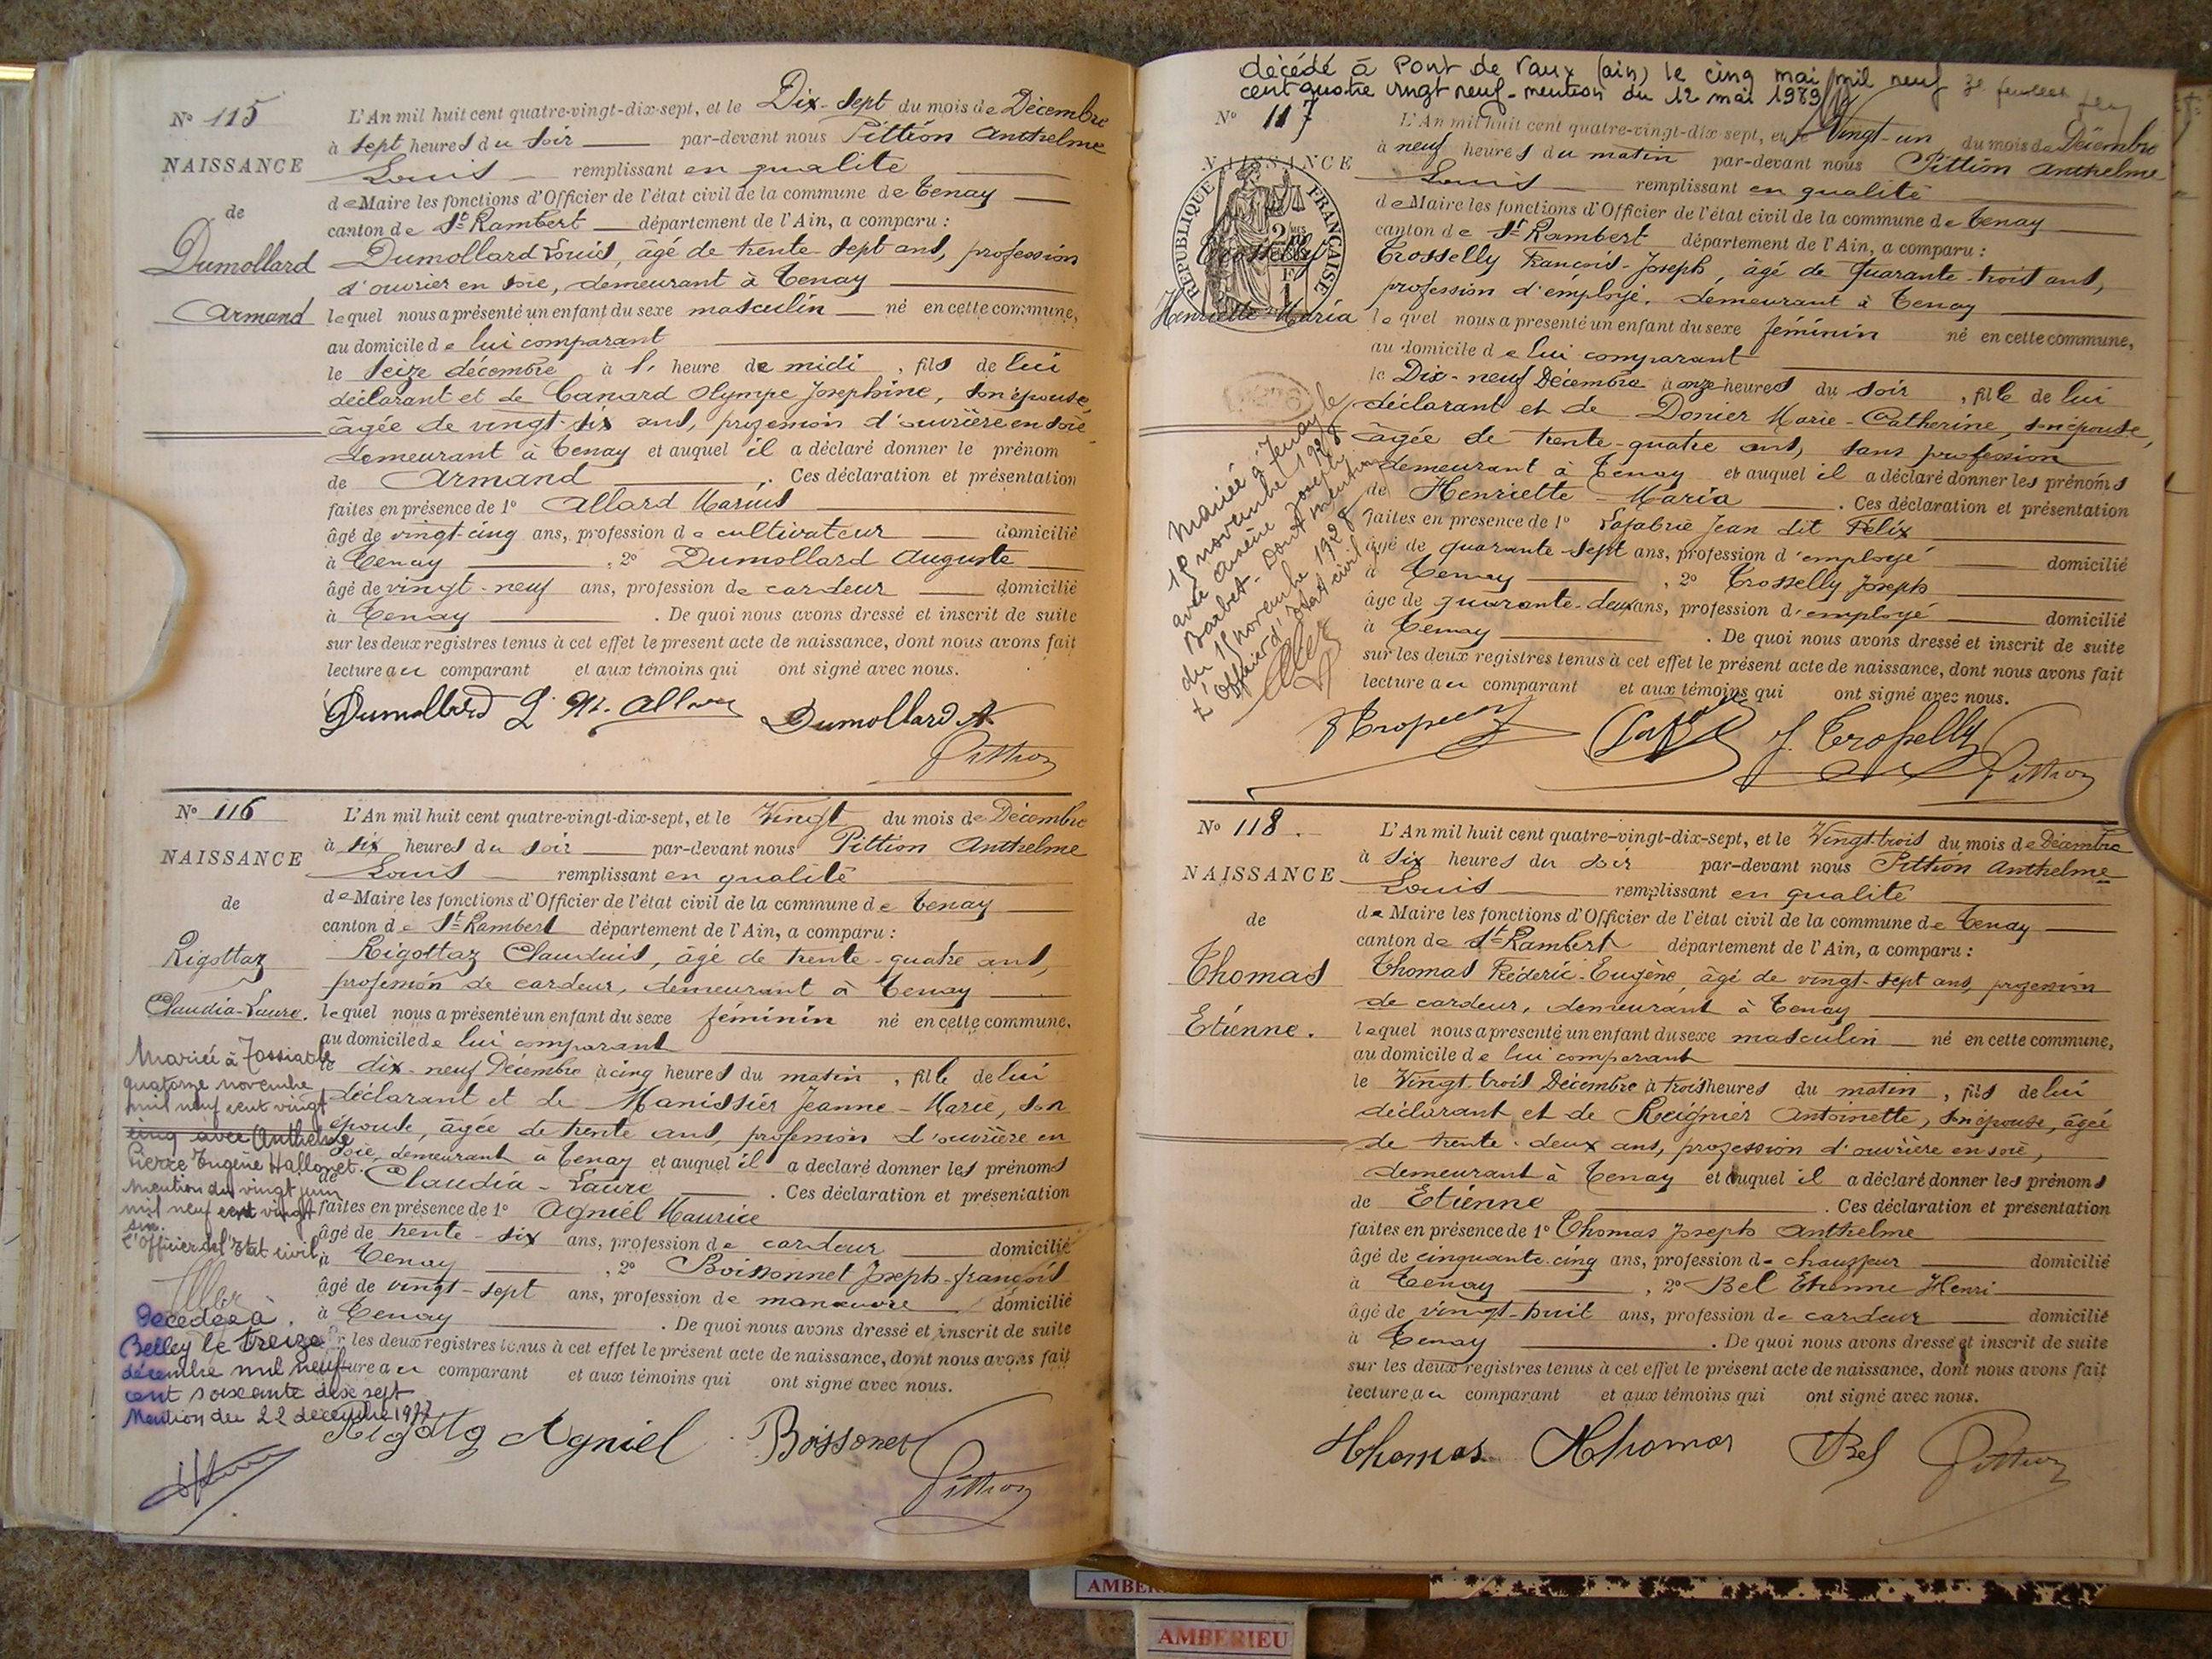 N° 115
NAISSANCE
de
Dumollard
Armand
L'An mil huit cent quatre-vingt-dix-sept, et le Dix-sept du mois de Décembre
à sept heures du soir par-devant nous Pittion Anthelme
Louis remplissant en qualité
de Maire les fonctions d'Officier de l'état civil de la commune de Tenay
canton de St Rambert département de l'Ain, a comparu :
Dumollard Louis, âgé de trente-sept ans, profession
d'ouvrier en soie, demeurant à Tenay
lequel nous a présenté un enfant du sexe masculin né en cette commune,
au domicile de lui comparant
le seize décembre à l' heure de midi, fils de lui
déclarant et de Canard Olympe Joséphine, son épouse,
âgée de vingt-six ans, profession d'ouvrière en soie
demeurant à Tenay et auquel il a déclaré donner le prénom
de Armand. Ces déclaration et présentation
faites en présence de 1° Allard Marius
âgé de vingt-cinq ans, profession de cultivateur domicilié
à Tenay, 2° Dumollard Auguste
âgé de vingt-neuf ans, profession de cardeur domicilié
à Tenay. De quoi nous avons dressé et inscrit de suite
sur les deux registres tenus à cet effet le présent acte de naissance, dont nous avons fait
lecture au comparant et aux témoins qui ont signé avec nous.
Dumollard L. M. Allard Dumollard A.
Pittion
N° 116
NAISSANCE
de
Rigottaz
Claudia-Laure.
L'An mil huit cent quatre-vingt-dix-sept, et le Vingt du mois de Décembre
à six heures du soir par-devant nous Pittion Anthelme
Louis remplissant en qualité
de Maire les fonctions d'Officier de l'état civil de la commune de Tenay
canton de St Rambert département de l'Ain, a comparu :
Rigottaz Claudius, âgé de trente-quatre ans,
profession de cardeur, demeurant à Tenay
lequel nous a présenté un enfant du sexe féminin né en cette commune,
au domicile de lui comparant
le dix-neuf Décembre à cinq heures du matin, fille de lui
déclarant et de Manissier Jeanne-Marie, son
épouse, âgée de trente ans, profession d'ouvrière en
soie, demeurant à Tenay et auquel il a déclaré donner les prénoms
de Claudia-Laure. Ces déclaration et présentation
faites en présence de 1° Agniel Maurice
âgé de trente-six ans, profession de cardeur domicilié
à Tenay, 2° Boissonnet Joseph-françois
âgé de vingt-sept ans, profession de manœuvre domicilié
à Tenay. De quoi nous avons dressé et inscrit de suite
sur les deux registres tenus à cet effet le présent acte de naissance, dont nous avons fait
lecture au comparant et aux témoins qui ont signé avec nous.
Mariée à Tossiat le
quatorze novembre
mil neuf cent vingt
cinq avec Anthelme
Pierre Eugène Hallonet.
Mention du vingt juin
mil neuf cent vingt
six.
L'Officier de l'Etat civil,
Décédée à
Belley le treize
décembre mil neuf
cent soixante dix sept
Mention du 22 décembre 1977
Rigottaz Agniel Boissonet
Pittion
décédé à Pont de Vaux (ain) le cinq mai mil neuf
cent quatre vingt neuf - mention du 12 mai 1989
N° 117
NAISSANCE
RÉPUBLIQUE FRANÇAISE
Trosselly
Henriette-Maria
L'An mil huit cent quatre-vingt-dix-sept, et le Vingt-un du mois de Décembre
à neuf heures du matin par-devant nous Pittion Anthelme
Louis remplissant en qualité
de Maire les fonctions d'Officier de l'état civil de la commune de Tenay
canton de St Rambert département de l'Ain, a comparu :
Trosselly François-Joseph, âgé de quarante-trois ans,
profession d'employé, demeurant à Tenay
lequel nous a présenté un enfant du sexe féminin né en cette commune,
au domicile de lui comparant
le Dix-neuf Décembre à onze heures du soir, fille de lui
déclarant et de Donier Marie-Catherine, son épouse,
âgée de trente-quatre ans, sans profession
demeurant à Tenay et auquel il a déclaré donner les prénoms
de Henriette-Maria. Ces déclaration et présentation
faites en présence de 1° Lafabrie Jean dit Félix
âgé de quarante-sept ans, profession d'employé domicilié
à Tenay, 2° Trosselly Joseph
âgé de quarante-deux ans, profession d'employé domicilié
à Tenay. De quoi nous avons dressé et inscrit de suite
sur les deux registres tenus à cet effet le présent acte de naissance, dont nous avons fait
lecture au comparant et aux témoins qui ont signé avec nous.
Mariée à Tenay le
novembre 1928
avec
Barbet. Dont mention
du novembre 1928
L'Officier d'état civil
J. Trosselly
Pittion
N° 118.
NAISSANCE
de
Thomas
Etienne.
L'An mil huit cent quatre-vingt-dix-sept, et le Vingt-trois du mois de Décembre
à six heures du soir par-devant nous Pittion Anthelme
Louis remplissant en qualité
de Maire les fonctions d'Officier de l'état civil de la commune de Tenay
canton de St Rambert département de l'Ain, a comparu :
Thomas Fréderic-Eugène, âgé de vingt-sept ans, profession
de cardeur, demeurant à Tenay
lequel nous a présenté un enfant du sexe masculin né en cette commune,
au domicile de lui comparant
le Vingt-trois Décembre à trois heures du matin, fils de lui
déclarant et de Reignier Antoinette, son épouse, âgée
de trente-deux ans, profession d'ouvrière en soie,
demeurant à Tenay et auquel il a déclaré donner les prénoms
de Etienne. Ces déclaration et présentation
faites en présence de 1° Thomas Joseph Anthelme
âgé de cinquante-cinq ans, profession de chauffeur domicilié
à Tenay, 2° Bel Etienne Henri
âgé de vingt-huit ans, profession de cardeur domicilié
à Tenay. De quoi nous avons dressé et inscrit de suite
sur les deux registres tenus à cet effet le présent acte de naissance, dont nous avons fait
lecture au comparant et aux témoins qui ont signé avec nous.
Thomas Thomas Bel Pittion
AMBERIEU